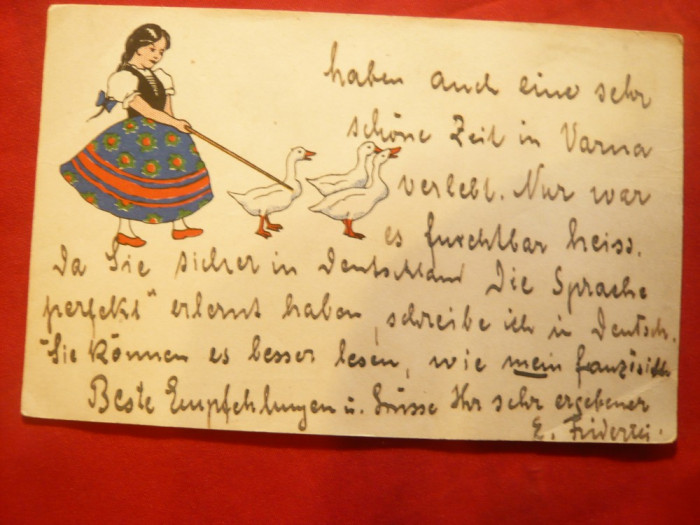 haben auch eine sehr
schöne Zeit in Varna
verlebt. Nur war
es furchtbar heiss.
Da Sie sicher in Deutschland Die Sprache
"perfekt" erlernt haben, schreibe ich in Deutsch.
Sie können es besser lesen, wie mein französisch
Beste Empfehlungen u. Grüsse Ihr sehr ergebener
E.